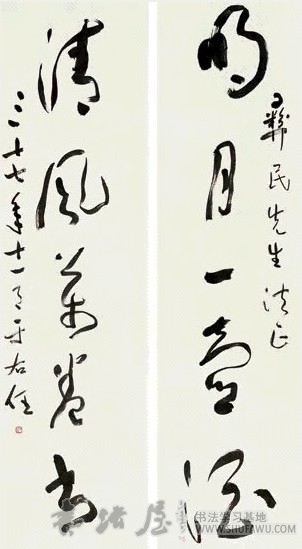 彝民先生法正
明月一壺酒
清風萬卷書
三十七年十一月于右任
书法学习基地
WWW.SHUFAWU.COM